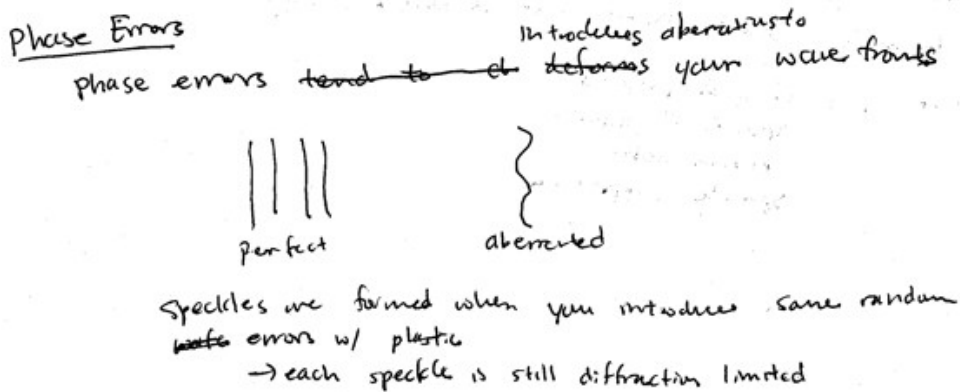 Phase Errors
introduces aberrations to
phase errors tend to deforms your wave fronts
perfect
aberrated
speckles are formed when you introduce some random
errors w/ plastic
→ each speckle is still diffraction limited